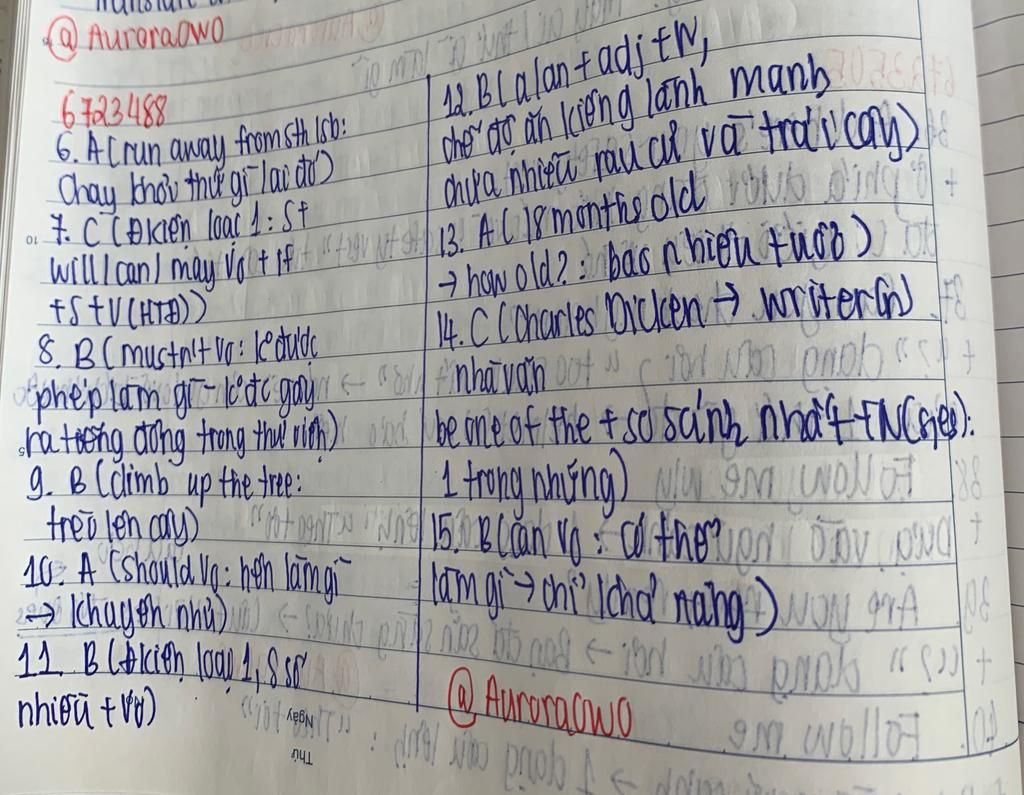 @ AuroraOwO
6723488
6. A (run away from sth/sb:
chạy khỏi thứ gì/ai đó)
7. C (Đkiện loại 1: S +
will/can/may V0 + if
+ S + V(HTĐ))
8. B (mustn't V0: k được
phép làm gì - k đc gây
ra tiếng động trong thư viện)
9. B (climb up the tree:
trèo lên cây)
10. A (should V0: nên làm gì
→ khuyên nhủ)
11. B (Đkiện loại 1, S số
nhiều + V0)
12. B (a/an + adj + N,
chế độ ăn kiêng lành mạnh
chứa nhiều rau củ và trái cây)
13. A (18 months old
→ how old?: bao nhiêu tuổi)
14. C (Charles Dicken → writer(n)
nhà văn
be one of the + so sánh nhất + N(s/es):
1 trong những)
15. B (can V0: có thể
làm gì → chỉ khả năng)
@ AuroraOwO
Ngày
Thứ